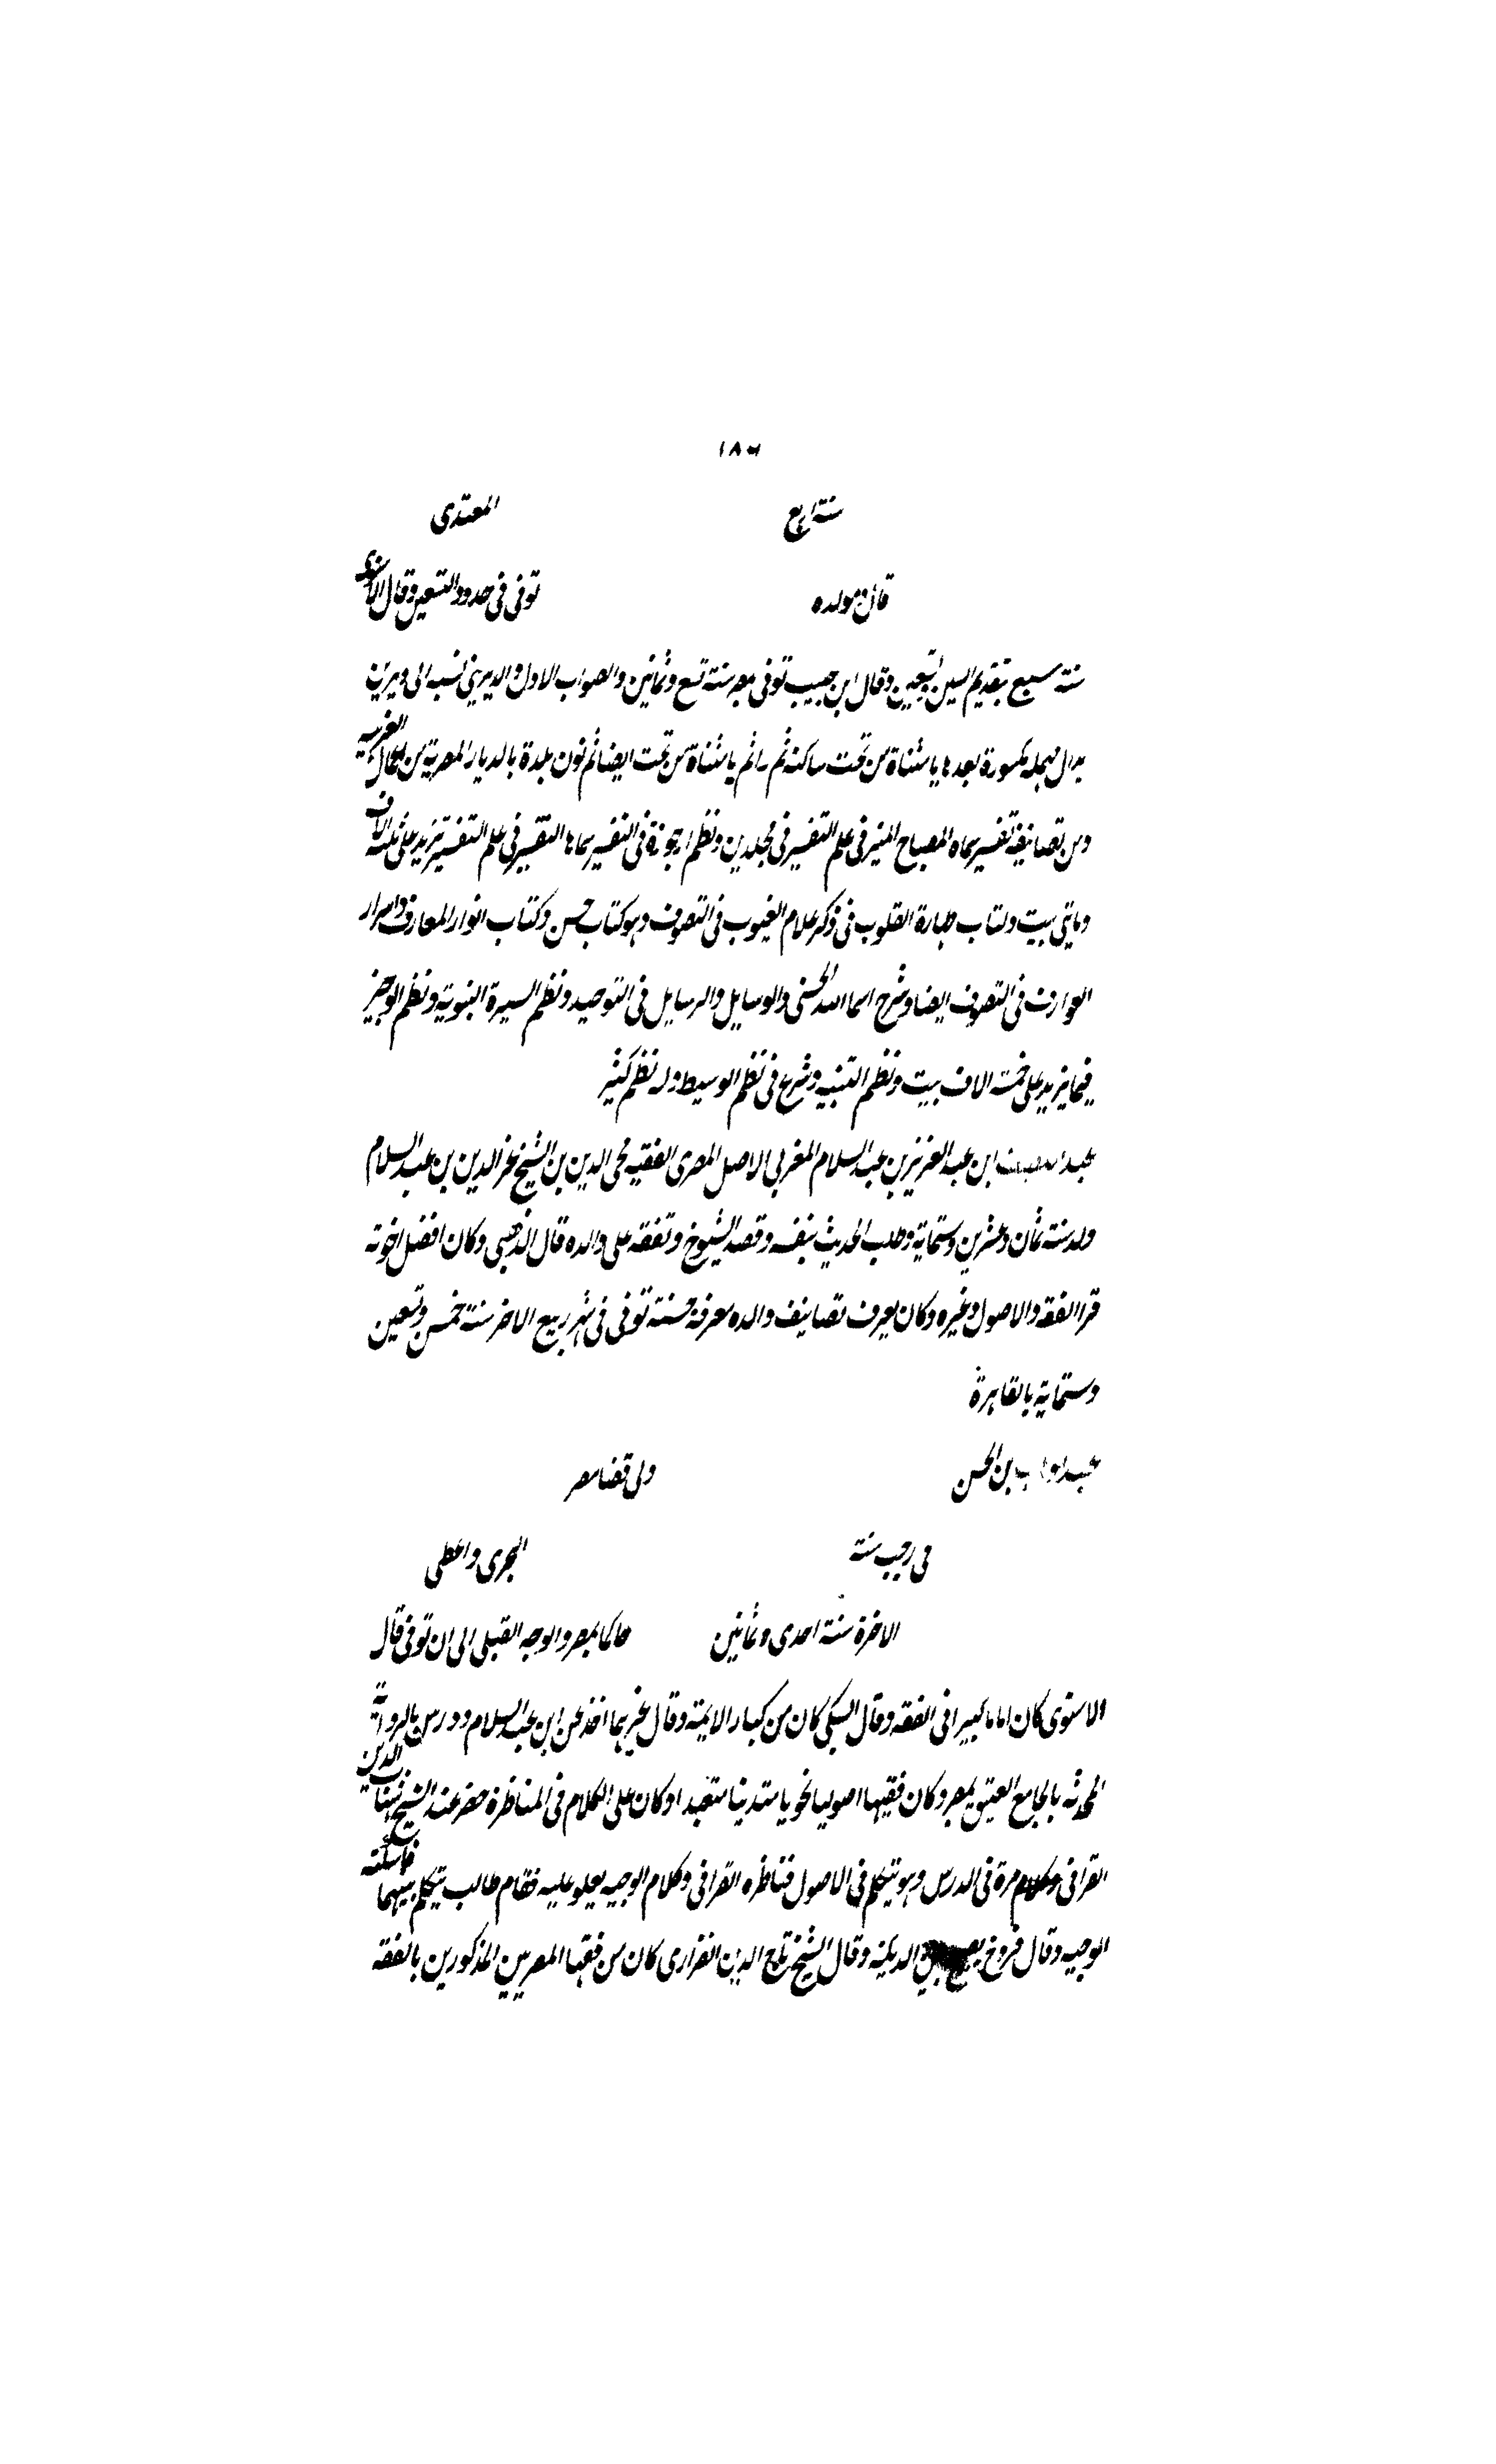 ١٨٦
سنة اربع المعتدى
فان مولده توفى فى حدود التسعين وقال الاسنوى
سنة سبع بتقديم السين وتسعين وقال ابن حبيب توفى بمصر سنة تسع وثمانين والصواب الاول والديرينى نسبه الى ديرين
بدال مهمله مكسورة بعدها يا مثناة من تحت ساكنه ثم را ثم يا مثناة من تحت ايضا ثم نون بلدة بالديار المصرية من اعمال الغربيه
ومن تصانيفه تفسير سماه المصباح المنير فى علم التفسير فى مجلدين ونظم ارجوزة فى التفسير سماها التيسير فى علم التفسير تزيد على ثلثه الاف
ومايتى بيت وكتاب طهارة القلوب فى ذكر علام الغيوب فى التصوف وهو كتاب حسن وكتاب انوار المعارف واسرار
العوارف فى التصوف ايضا وشرح اسما الله الحسنى والوسايل والرسايل فى التوحيد ونظم السيرة النبوية ونظم الوجيز
فيما يزيد على خمسة الاف بيت ونظم التنبيه وشرع فى نظم الوسيط وله نظم كثير
عبد اللطيف ابن عبد العزيز بن عبد السلام المغربى الاصل المصرى الفقيه محى الدين بن الشيخ عز الدين بن عبد السلام
ولد سنة ثمان وعشرين وستماية وطلب الحديث بنفسه وقصد الشيوخ وتفقه على والده قال الذهبى وكان افضل اخوته
قرا الفقه والاصول وغيره وكان يعرف تصانيف والده معرفة حسنة توفى فى شهر ربيع الاخر سنة خمس وتسعين
وستماية بالقاهرة
عبد الوهاب بن الحسن ولى قضا مصر
فى رجب سنة البحرى واعطى
الاخرة سنة احدى وثمانين حاكما بمصر والوجه القبلى الى ان توفى قال
الاسنوى كان اماما كبيرا فى الفقه وقال السبكى كان من كبار الايمة وقال غيرهما اخذ عن ابن عبد السلام ودرس بالزواية
المجدية بالجامع العتيق بمصر وكان فقيها اصوليا نحويا متدينا متعبدا وكان على الكلام فى المناظرة حضر عند الشيخ شهاب الدين
القرافى مرة فى الدرس وهو يتكلم فى الاصول فناظره القرافى وكلام الوجيه يعلو عليه فقام طالب يتكلم بينهما فاسكته
الوجيه وقال فروخ يصيح بين الديكه وقال الشيخ تاج الدين الفزارى كان من فقها المصريين المذكورين بالفقه